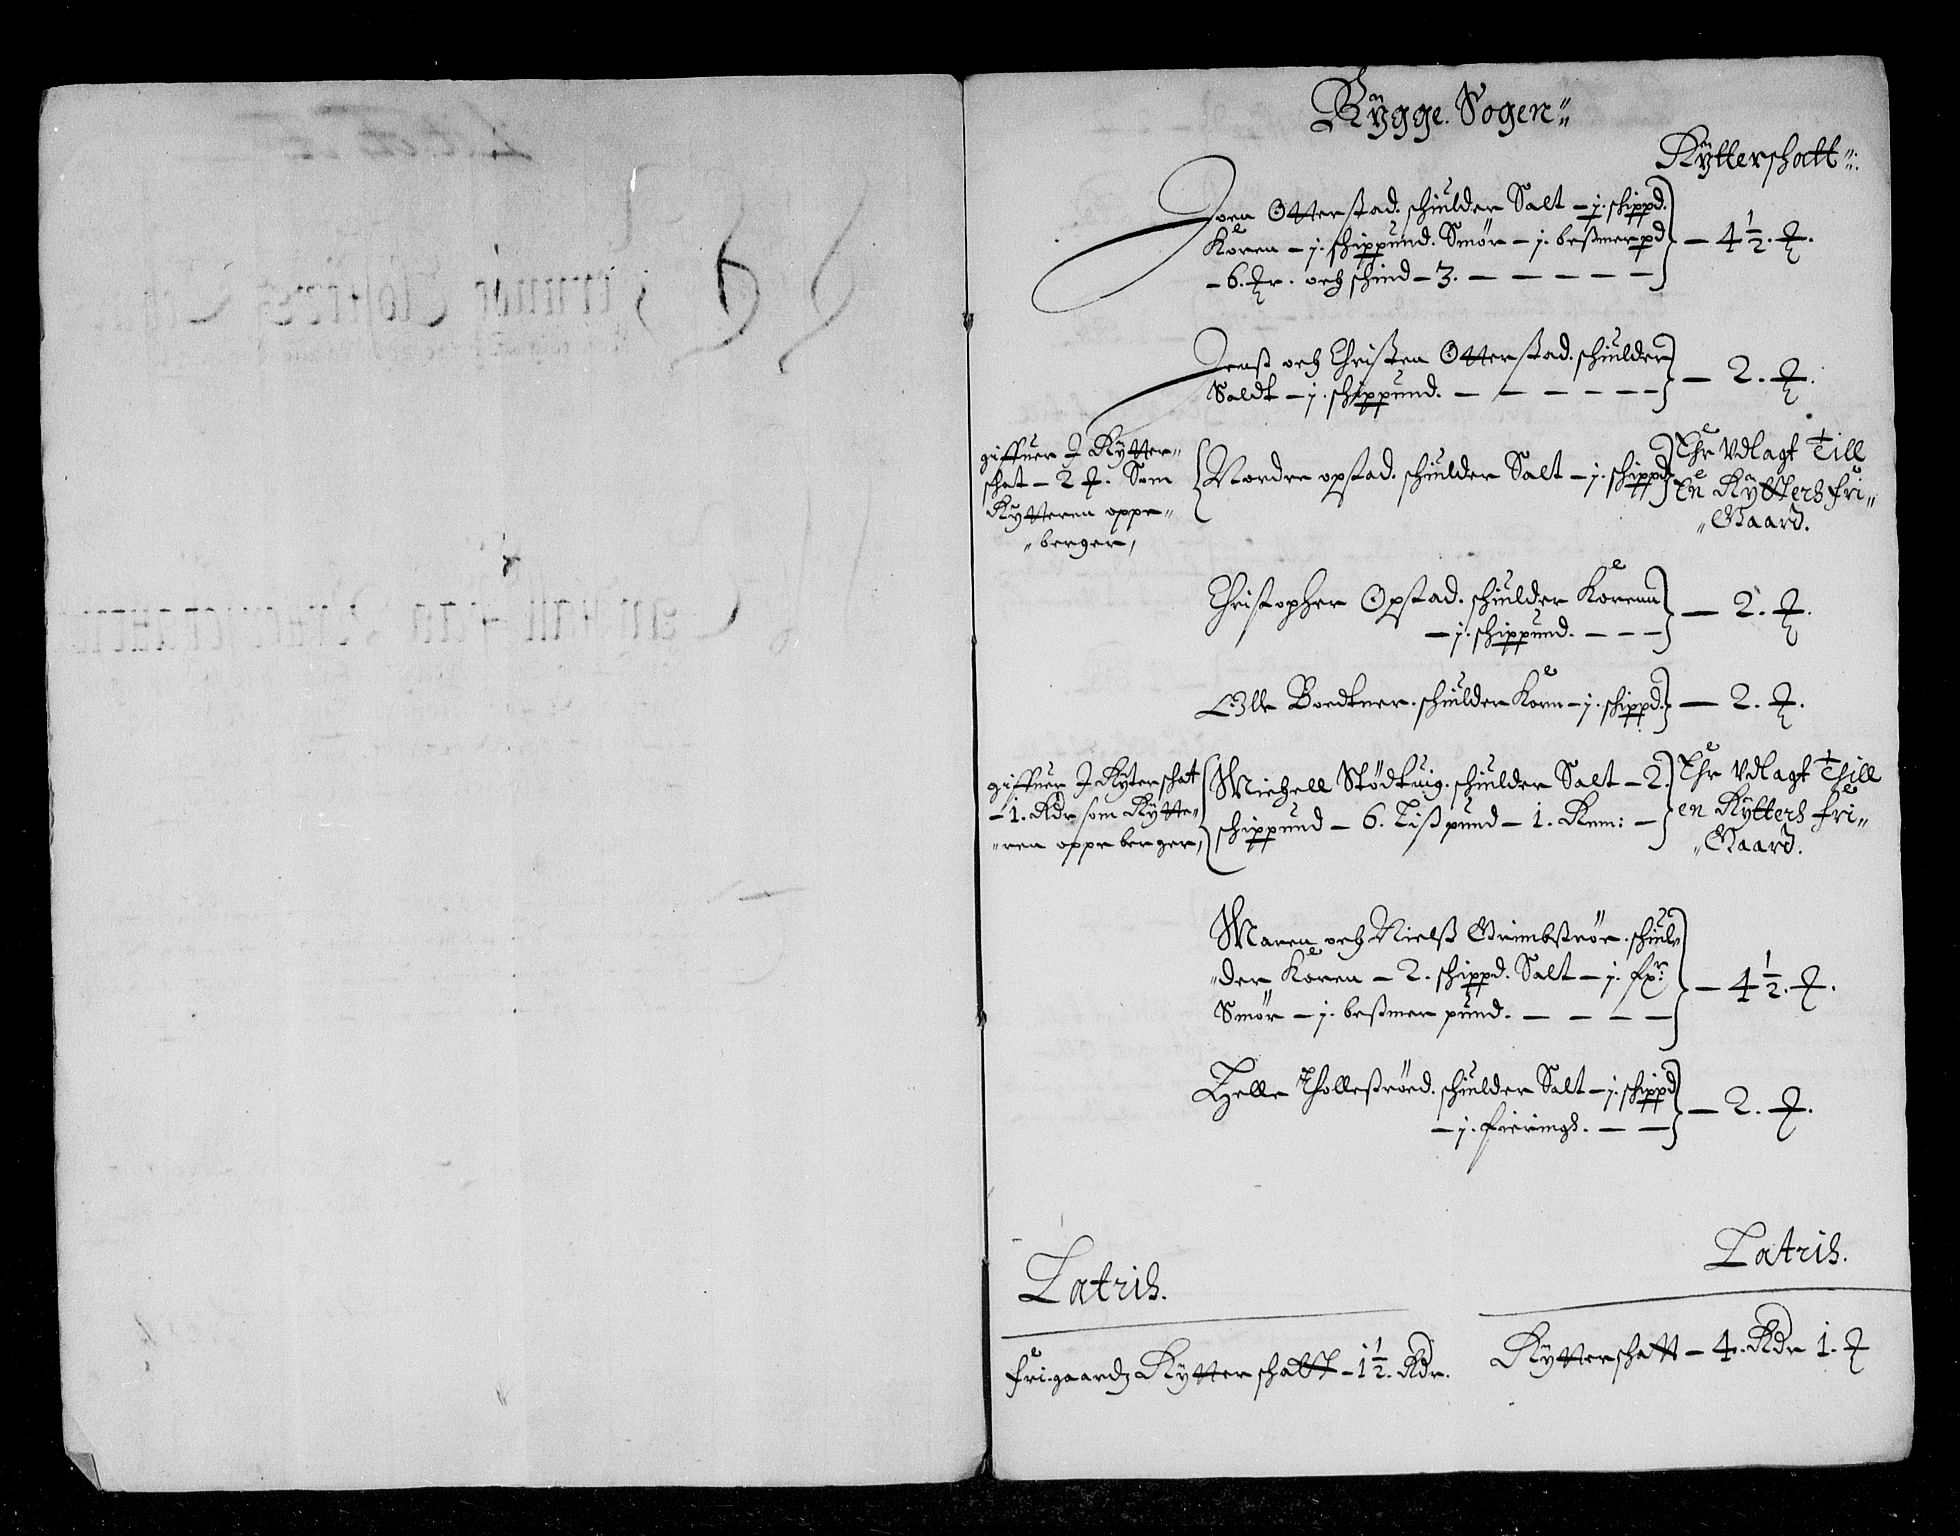 Rÿgge. Sogen
Rÿtterschatt
Joen Otterstad. schiulder Salt - j. schippd.
Koren - j. schippund. Smør - j. beszmerpd
- 6. och schind - 3. - 4 1/2.
Jensz och Christen Otterstad. schiulder
Saldt - j. schippund. - 2.
giffuer J Rÿtter
schat - 2. Som
Rÿtteren oppe
berger,
Nordre opstad. schiulder Salt - j. schippd
Ehr Vdlagt Till
en Rÿtters fri
Gaard.
Christopher Opstad. schiulder Korenn
- j. schippund. - 2.
Olle Boedtner. schiulder Korn - j. schippd. - 2.
giffuer J Rÿterschat
- 1. Rdr som Rÿtte
ren oppe berger,
Michell Stødtuig. schiulder Salt - 2.
schippund - 6. Liszpund - 1. Rem: -
Ehr Vdlagt Thill
en Rÿtters fri
Gaard.
Maren och Nielsz Grimbstrør. schiul
der Koren - 2. schippd. Salt - j.
Smør - j. beszmer pund. - 4 1/2.
Helle Thollesrøed. schiulder Salt - j. schippd
- j. fierings. - 2.
Latris.
Latris.
fri. gaards Rÿtter schatt - 1 1/2. Rdr.
Rÿtterschatt - 4. Rdr 1.